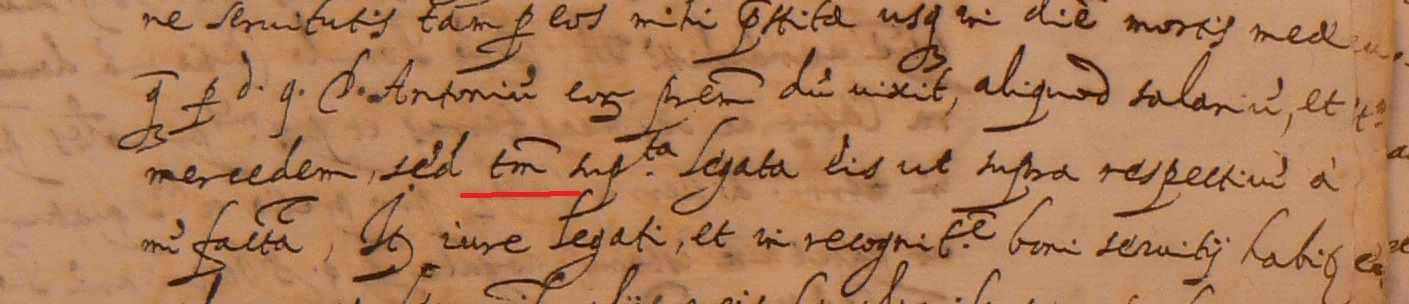 ne seruitutis tam p eos mihi pstita usq in die mortis meae
q p d. q. D. Antoniu eoꝝ prem du uixit, aliquod salariu, et
mercedem, sed tm sup.ta legata eis ut supra respectiue à
mi facta, Itē iure legati, et in recognit.e boni seruitij habit